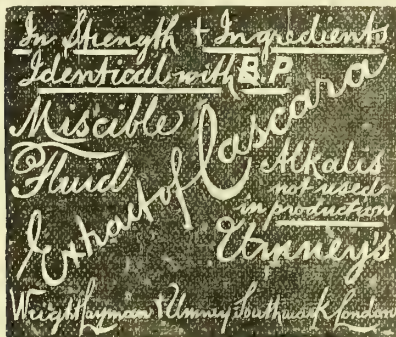 In Strength & Ingredients
Identical with B.P
Miscible
Fluid
Extract of Cascara
Alkalis
not used
in production
Umney's
Wright Layman & Umney Southwark London